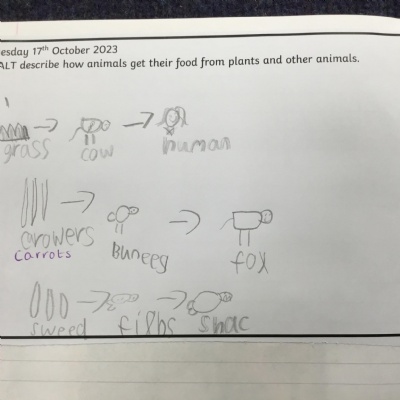 esday 17th October 2023
ALT describe how animals get their food from plants and other animals.
grass cow human
carowers Buneeg fox
carrots
sweed fighs shac